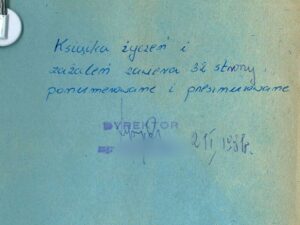 Książka życzeń i
zażaleń zawiera 32 strony
ponumerowane i przesznurowane
DYREKTOR